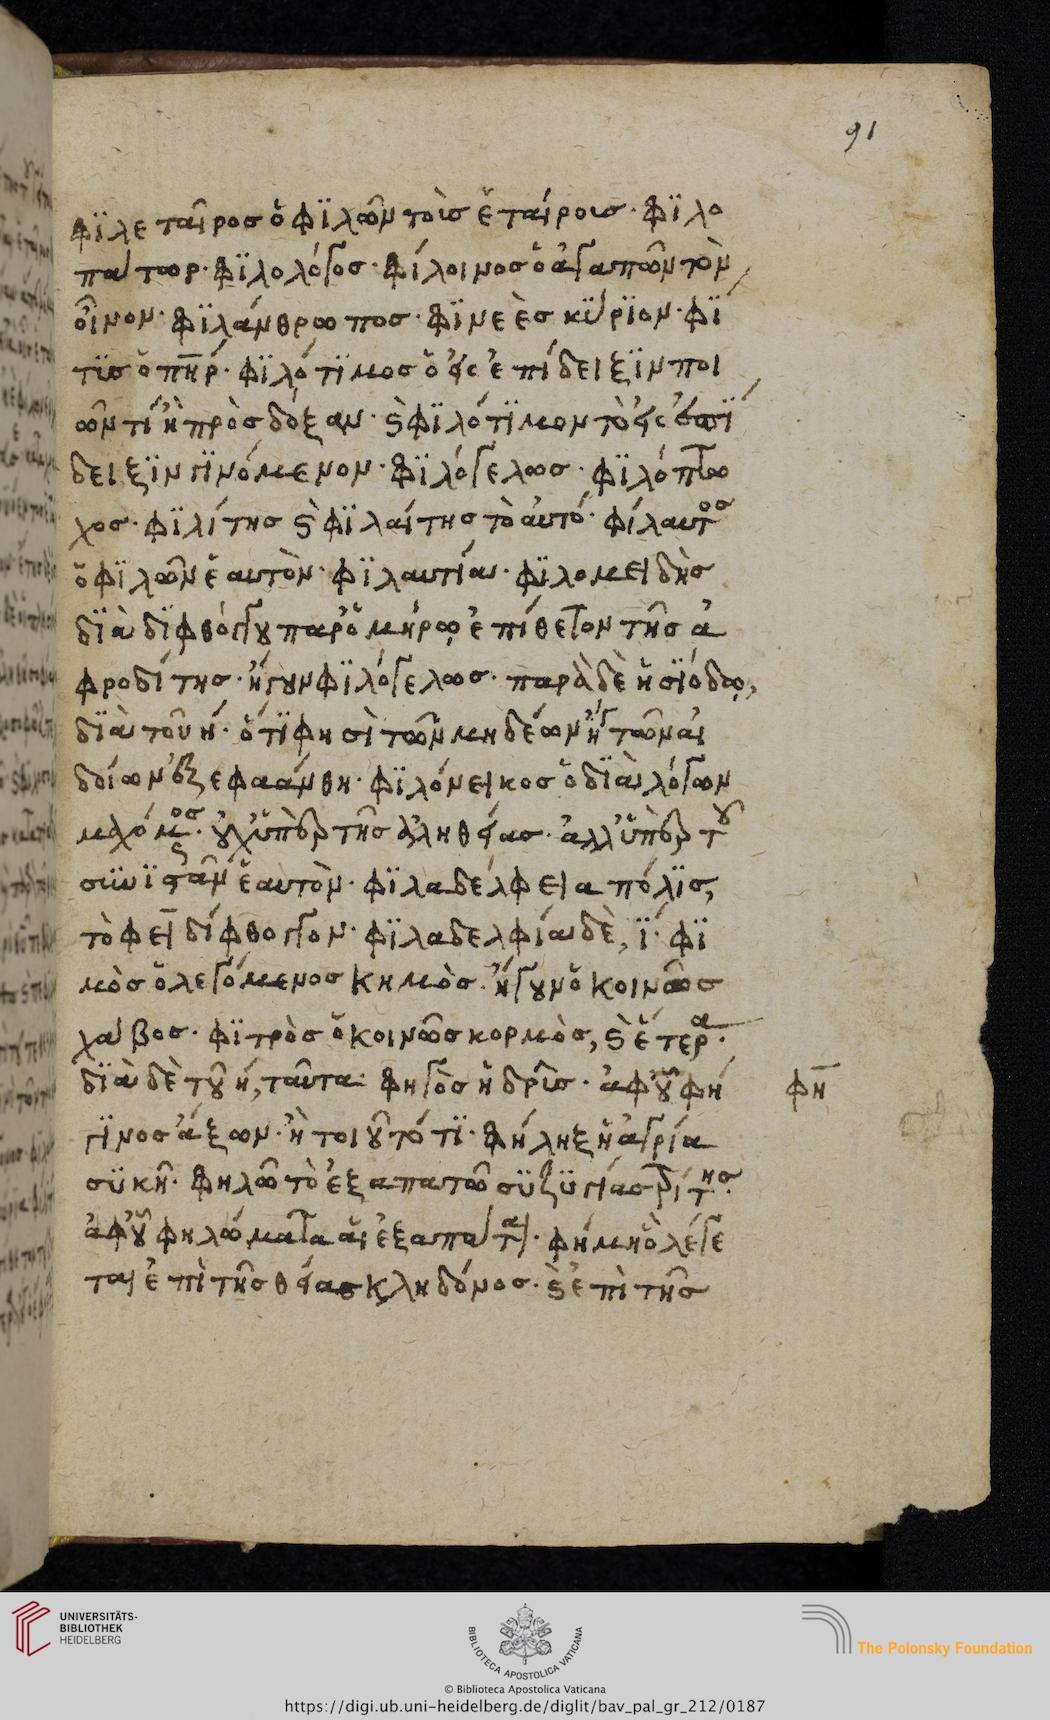 91
φϊλεταῖροσ ὁ φϊλῶν τοὺσ ἑταίρουσ· φϊλο
πάτωρ· φϊλολόγοσ· φίλοινοσ ὁ ἀγαπῶν τὸν
οἶνον· φϊλάνθρωποσ· φϊνεὲσ κύρϊον· φϊ
τϊσ ὁ πη̅ρ· φϊλότϊμοσ ὁ εἰσ ἐπίδειξϊν ποι
ῶν τί ἢ πρὸσ δόξαν· ϗ φϊλότϊμον τὸ εἰσ ἐπί
δειξϊν γϊνόμενον· φϊλόγελωσ· φϊλόπτω
χοσ· φϊλίτησ ϗ φϊλαίτησ τὸ αὐτό· φίλαυτοσ
ὁ φϊλῶν ἑαυτὸν· φϊλαυτία· φϊλομειδὴσ
δϊὰ δϊφθόγγου παρ' ὁμήρω ἐπίθετον τῆσ ἀ
φροδίτησ· ἤγουν φϊλόγελωσ· παρὰ δὲ ἡσϊόδω,
δϊὰ τοῦ ή· ὅτϊ φησὶ τῶν μηδέων ἤγ τῶν αἰ
δοίων ἐξεφαάνθη· φϊλόνεικοσ ὁ δϊὰ λόγων
μαχόμοσ· οὐχ ὑπὲρ τῆσ ἀληθείασ· ἀλλ' ὑπὲρ τοῦ
συϊϊστᾶν ἑαυτὸν· φϊλαδέλφεια πόλϊσ,
τὸ φει δίφθογγον· φϊλαδελφία δὲ, ϊ· φϊ
μὸσ ὁ λεγόμενοσ κημὸσ· ἤγουν ὁ κοινῶσ
χάβοσ· φϊτρὸσ ὁ κοινῶσ κορμὸσ, ϗ ἕτερα·
δϊὰ δὲ τοῦ ή, ταῦτα· φηγὸσ ἡ δρῦσ· ἀφ' οὗ φή
φη
γϊνοσ ἄξων· ἤτοι οὗτό τϊ· φήληξ ἡ ἀγρία
συκῆ· φηλῶ τὸ ἐξαπατῶ συζυγίασ τρίτησ·
ἀφ' οὗ φηλώματα αἱ ἐξαπάται· φήμη ὃ λέγε
ται ἐπὶ τῆσ θείασ κληδόνοσ· ϗ ἐπὶ τῆσ
UNIVERSITÄTS-
BIBLIOTHEK
HEIDELBERG
BIBLIOTECA APOSTOLICA VATICANA
The Polonsky Foundation
© Biblioteca Apostolica Vaticana
https://digi.ub.uni-heidelberg.de/diglit/bav_pal_gr_212/0187